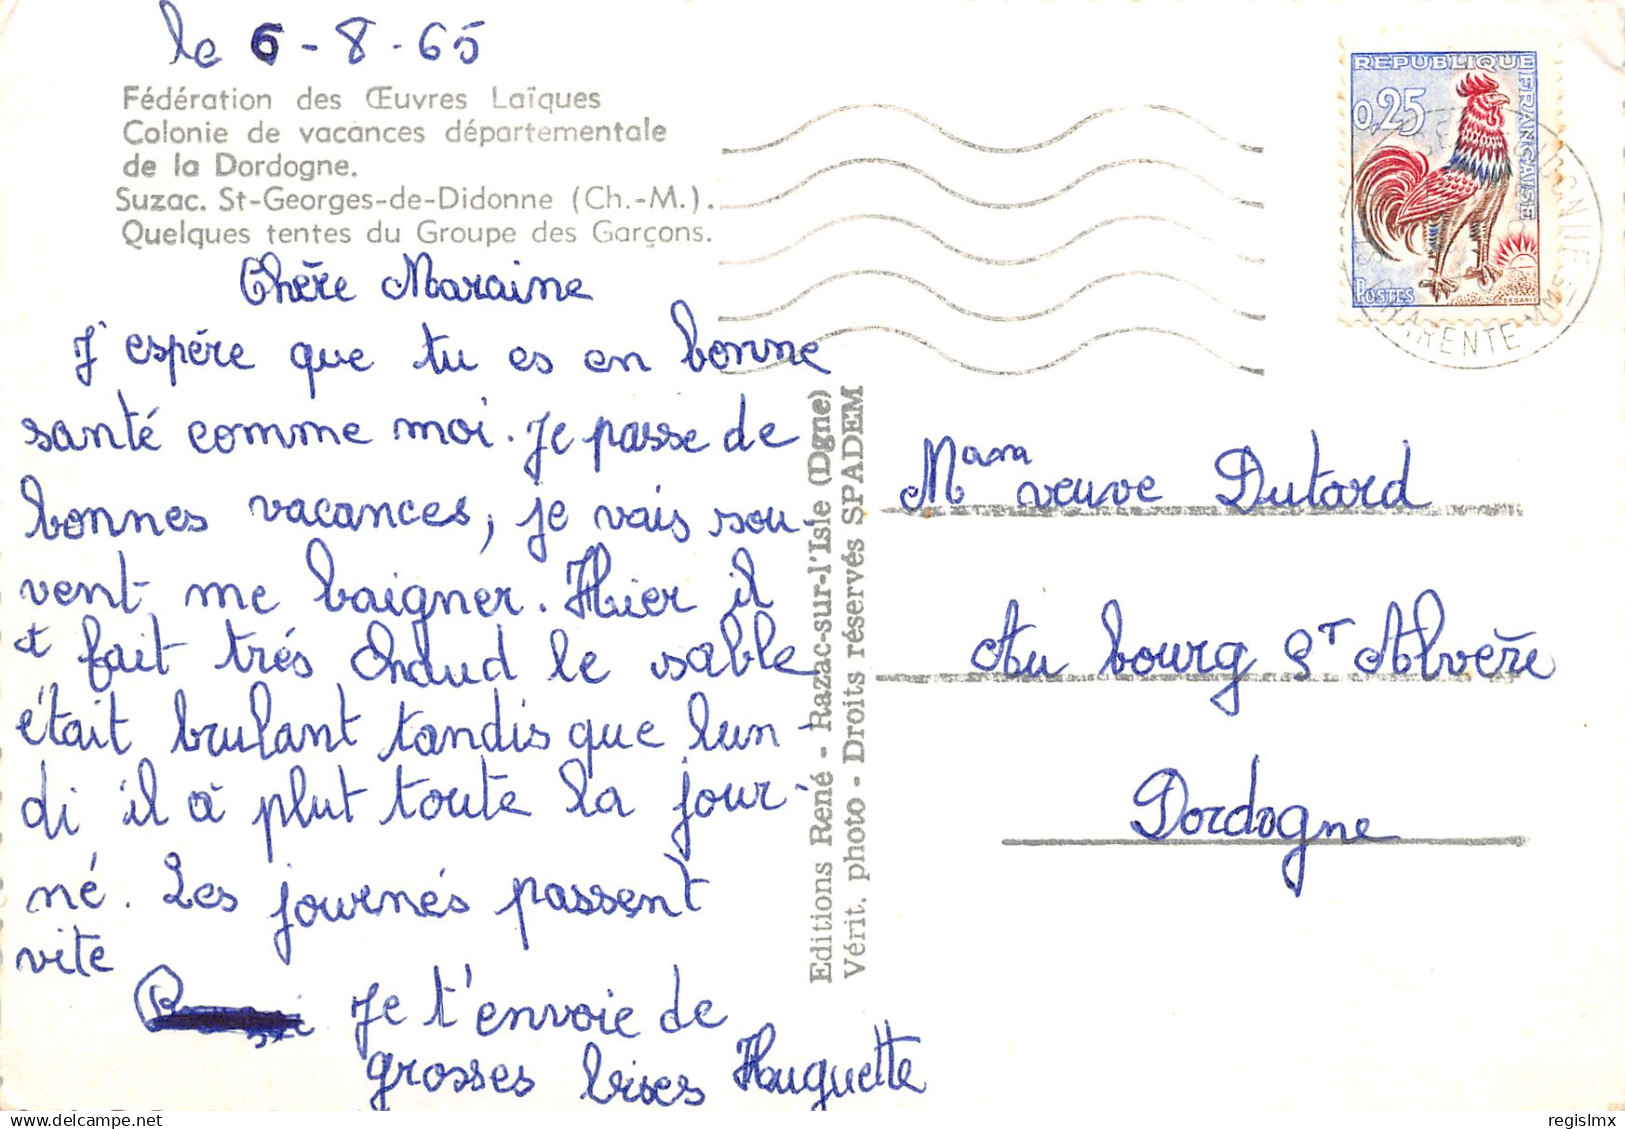 le 6-8-65
Fédération des Œuvres Laïques
Colonie de vacances départementale
de la Dordogne.
Suzac. St-Georges-de-Didonne (Ch.-M.).
Quelques tentes du Groupe des Garçons.
Chère Maraine
J'espére que tu es en bonne
santé comme moi. Je passe de
bonnes vacances, je vais sou-
vent me baigner. Hier il
fait trés chaud le sable
était brulant tandis que lun-
di il a plut toute la jour-
né. Les journés passent
vite
Je t'envoie de
grosses bises Huguette
Editions René - Razac-sur-l'Isle (Dgne)
Vérit. photo - Droits réservés SPADEM
REPUBLIQUE FRANÇAISE
0,25
POSTES
DECARIS
CHARENTE Mme
Mam veuve Dutard
Au bourg St Alvère
Dordogne
regislmx
www.delcampe.net